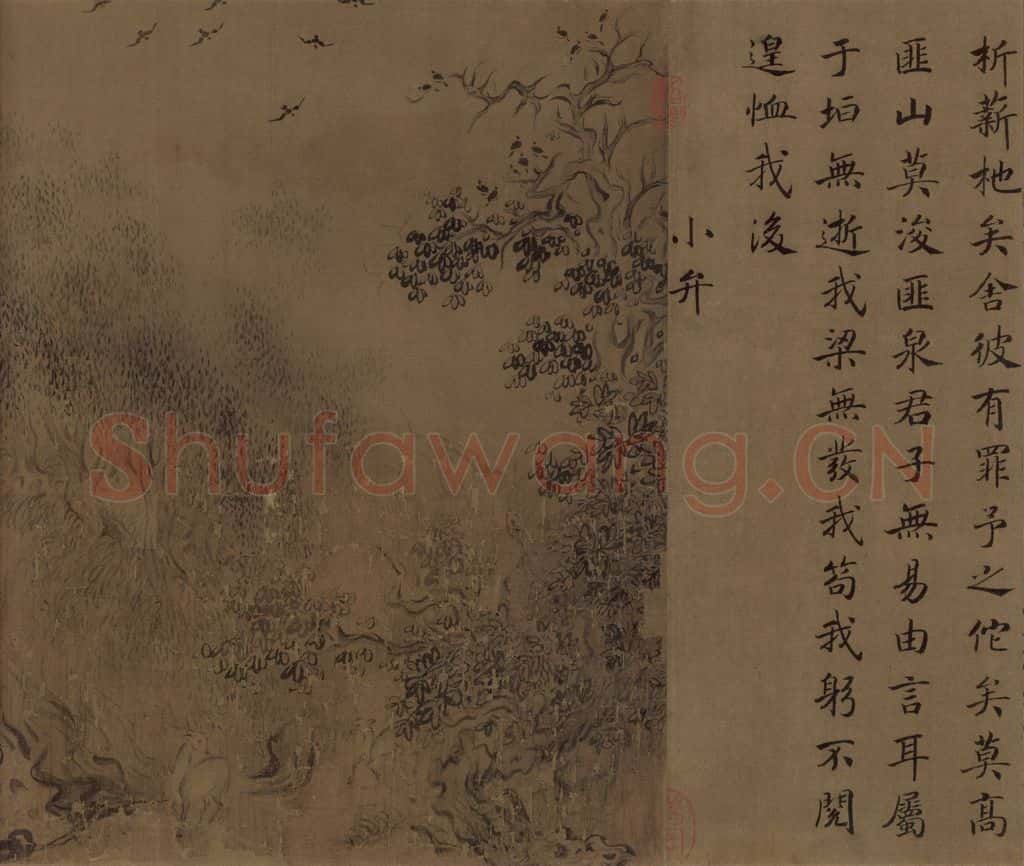 析薪杝矣舍彼有罪予之佗矣莫高
匪山莫浚匪泉君子無易由言耳屬
于垣無逝我梁無發我笱我躬不閱
遑恤我後
小弁
Shufawang.CN